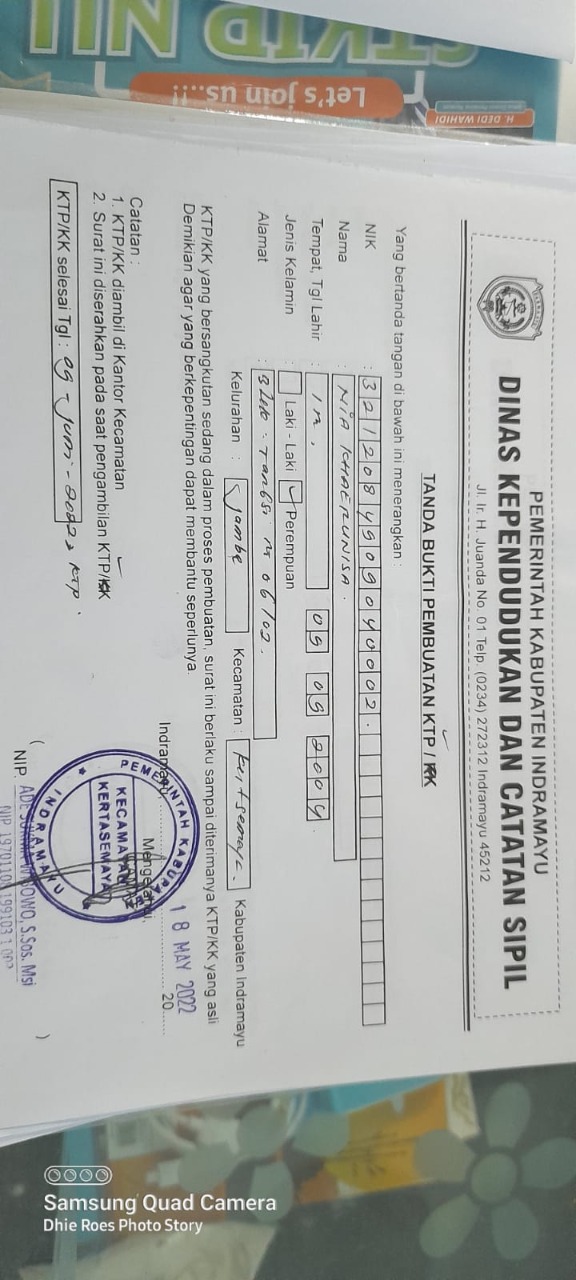 STKIP NU
Let's join us...!!
H. DEDI WAHIDI
PEMERINTAH KABUPATEN INDRAMAYU
DINAS KEPENDUDUKAN DAN CATATAN SIPIL
Jl. Ir. H. Juanda No. 01 Telp. (0234) 272312 Indramayu 45212
TANDA BUKTI PEMBUATAN KTP / KK
Yang bertanda tangan di bawah ini menerangkan :
NIK : 3212084509040002.
Nama : NIA KHAERUNISA.
Tempat, Tgl Lahir : Im, 05 09 2004
Jenis Kelamin : Laki - Laki Perempuan
Alamat : Blok. 06/02.
Kelurahan : Jambe Kecamatan : Kertsemaya. Kabupaten Indramayu
KTP/KK yang bersangkutan sedang dalam proses pembuatan, surat ini berlaku sampai diterimanya KTP/KK yang asli
Demikian agar yang berkepentingan dapat membantu seperlunya.
Indramayu, 18 MAY 2022 20
Mengetahui,
PEMERINTAH KABUPATEN
KECAMATAN
KERTASEMAYA
INDRAMAYU
Catatan :
1. KTP/KK diambil di Kantor Kecamatan
2. Surat ini diserahkan pada saat pengambilan KTP/KK
KTP/KK selesai Tgl : 09 - Juni - 2022 KTP.
( )
NIP. ADE WOWO, S.Sos. Msi
Samsung Quad Camera
Dhie Roes Photo Story